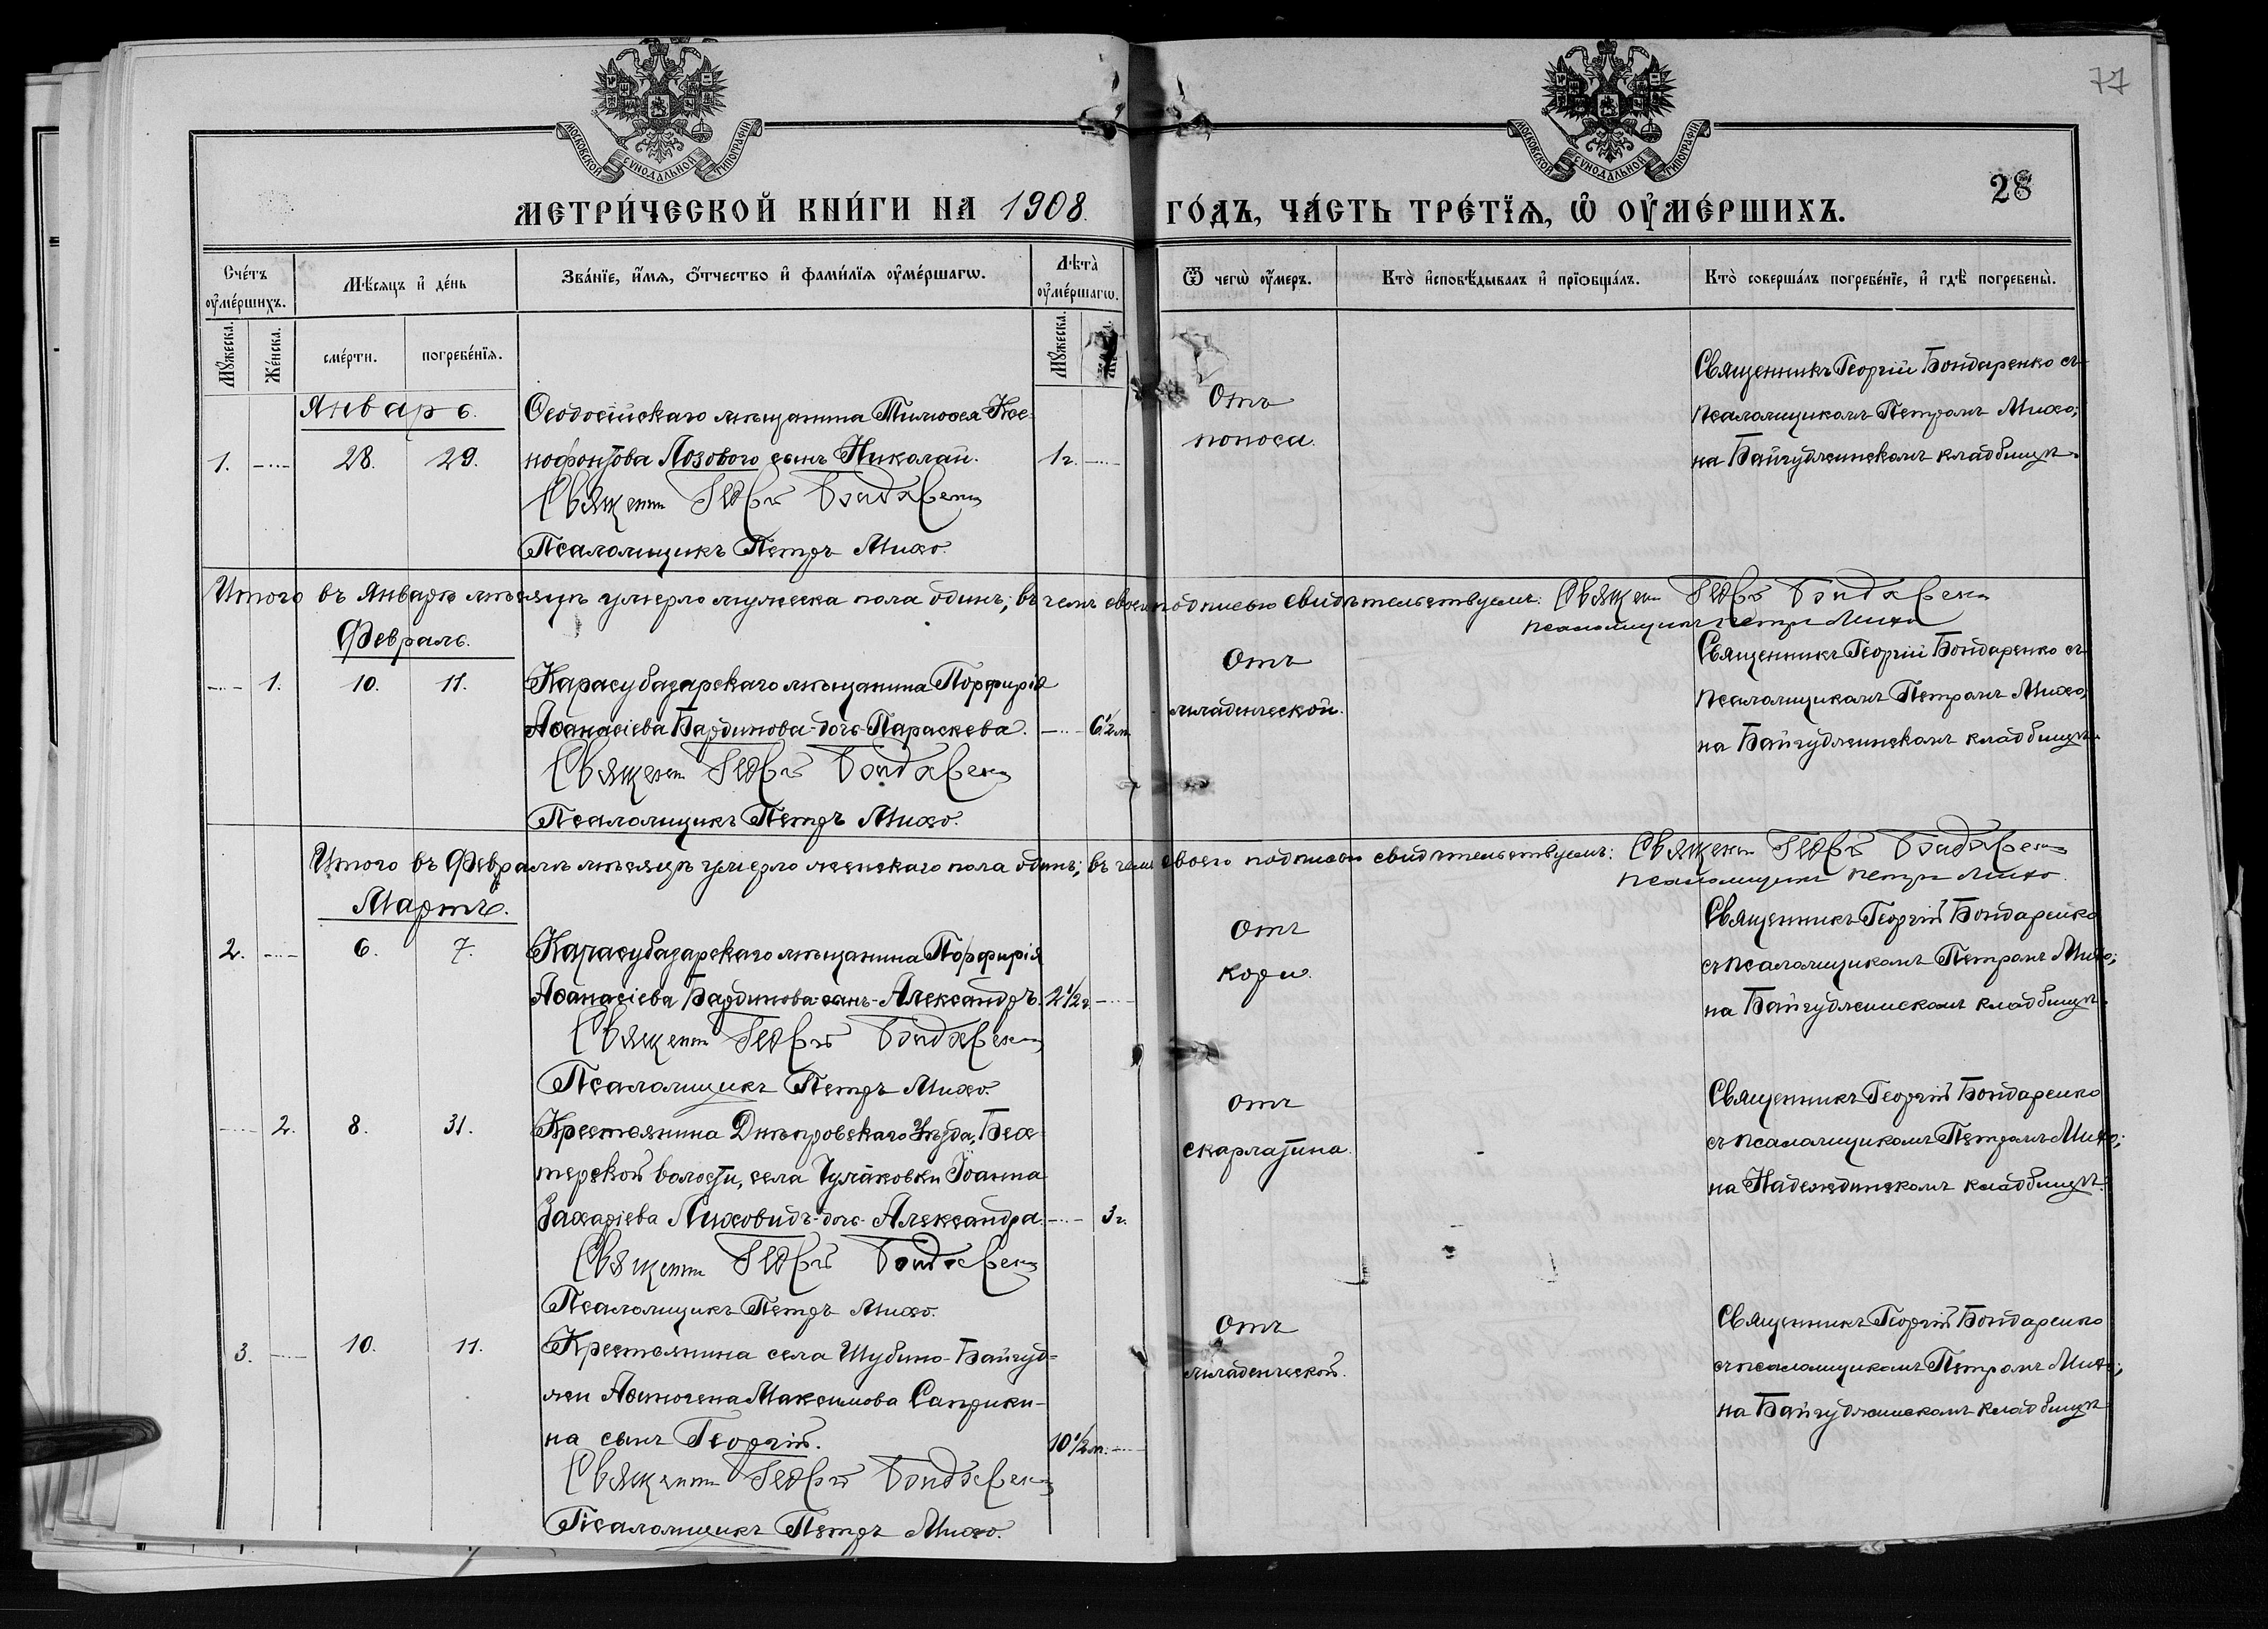 77
МОСКОВСКОЙ СѴНОДАЛЬНОЙ ТИПОГРАФІИ
МОСКОВСКОЙ СѴНОДАЛЬНОЙ ТИПОГРАФІИ
28
МЕТРИ́ЧЕСКОЙ КНИ́ГИ НА 1908. ГО́ДЪ, ЧА́СТЬ ТРЕ́ТІѦ, Ѽ ОУ҆МЕ́РШИХЪ.
Сче́тъ оу҆ме́ршихъ.
Мѣ́сяцъ и҆ де́нь
Зва́нїе, и҆́мѧ, ѻ҆́тчество и҆ фами́лїѧ оу҆ме́ршагѡ.
Лѣта̀ оу҆ме́ршагѡ.
Ѿ чегѡ̀ оу҆́меръ.
Кто̀ и҆сповѣ́дывалъ и҆ прїѻбща́лъ.
Кто̀ соверша́лъ погребе́нїе, и҆ гдѣ̀ погребены̀.
Мꙋ́жеска.
Же́нска.
сме́рти.
погребе́нїѧ.
Мꙋ́жеска.
Январь.
1. 28. 29.
Ѳеодосійскаго мѣщанина Тимоѳея Ксе-
нофонтова Лозового сынъ Николай. 1 г.
Священник Георгій Бондаренко
Псаломщикъ Петръ Михо.
Отъ
поноса.
Священникъ Георгій Бондаренко съ
псаломщикомъ Петромъ Михо;
на Байгудженскомъ кладбищѣ.
Итого въ Январѣ мѣсяцѣ умерло мужеска пола одинъ; въ чемъ своею подписью свидѣтельствуемъ: Священ Георгій Бондаренко
псаломщикъ Петръ Михо
Февраль.
1. 10. 11.
Карасубазарскаго мѣщанина Порфирія
Аѳанасіева Бардинова-дочь-Параскева. 6½ м.
Священник Георгій Бондаренко
Псаломщикъ Петръ Михо.
Отъ
младенческой.
Священникъ Георгій Бондаренко съ
псаломщикомъ Петромъ Михо,
на Байгудженскомъ кладбищѣ.
Итого въ Февралѣ мѣсяцѣ умерло женскаго пола одинъ; въ чемъ своего подписью свидѣтельствуемъ: Священник Георгій Бондаренко
псаломщикъ Петръ Михо.
Мартъ.
2. 6. 7.
Карасубазарскаго мѣщанина Порфирія
Аѳанасіева Бардинова-сынъ-Александръ. 2½ г.
Священник Георгій Бондаренко
Псаломщикъ Петръ Михо.
Отъ
кори.
Священникъ Георгій Бондаренко
съ псаломщикомъ Петромъ Михо;
на Байгудженскомъ кладбищѣ.
2. 8. 31.
Крестьянина Днѣпровскаго уѣзда, Бех-
терской волости, села Чулаковки Іоанна
Захаріева Лиховидъ-дочь-Александра. 3 г.
Священник Георгій Бондаренко
Псаломщикъ Петръ Михо.
отъ
скарлатина.
Священникъ Георгій Бондаренко
съ псаломщикомъ Петромъ Михо;
на Надеждинскомъ кладбищѣ.
3. 10. 11.
Крестьянина села Шубино-Байгуд-
жи Аѳиногена Максимова Саприки-
на сынъ Георгій. 10½ м.
Священник Георгій Бондаренко
Псаломщикъ Петръ Михо.
Отъ
младенческой.
Священникъ Георгій Бондаренко
съ псаломщикомъ Петромъ Михо;
на Байгудженскомъ кладбищѣ